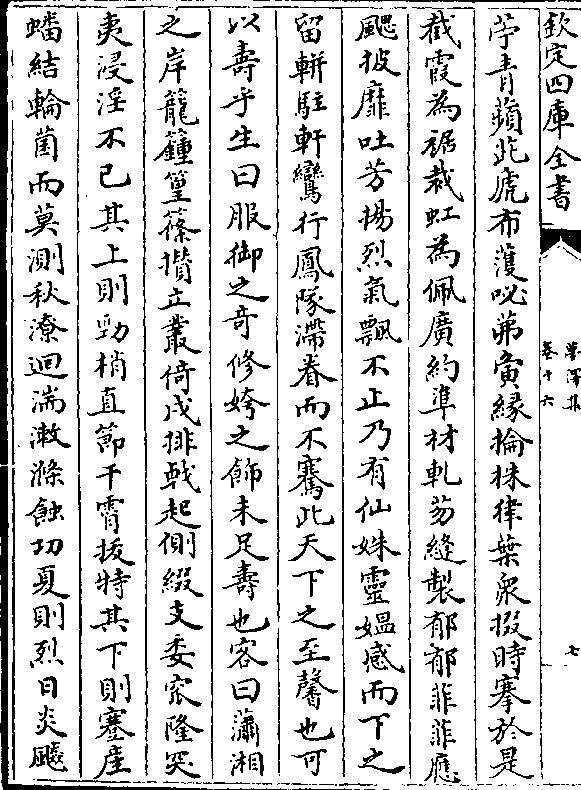 欽定四庫全書
夢澤集
卷十六
七
芧青蘋茈虒布濩咇茀寅緣掄株律葉衆掇時搴於是
截霞為裾裁虹為佩廣約準材軋芴縫製郁郁菲菲應
颸披靡吐芳揚烈氣飄不止乃有仙姝靈媼感而下之
留軿駐軒鸞行鳳隊滯眷而不騫此天下之至馨也可
以壽乎生曰服御之竒修姱之飾未足壽也客曰瀟湘
之岸籠籦篁篠攢立叢倚戍排㦸起側綴支委宻隆突
夷浸淫不已其上則勁梢直節干霄拔特其下則蹇產
蟠結輪菌而莫測秋潦迴湍漱滌蝕功夏則烈日炎飈